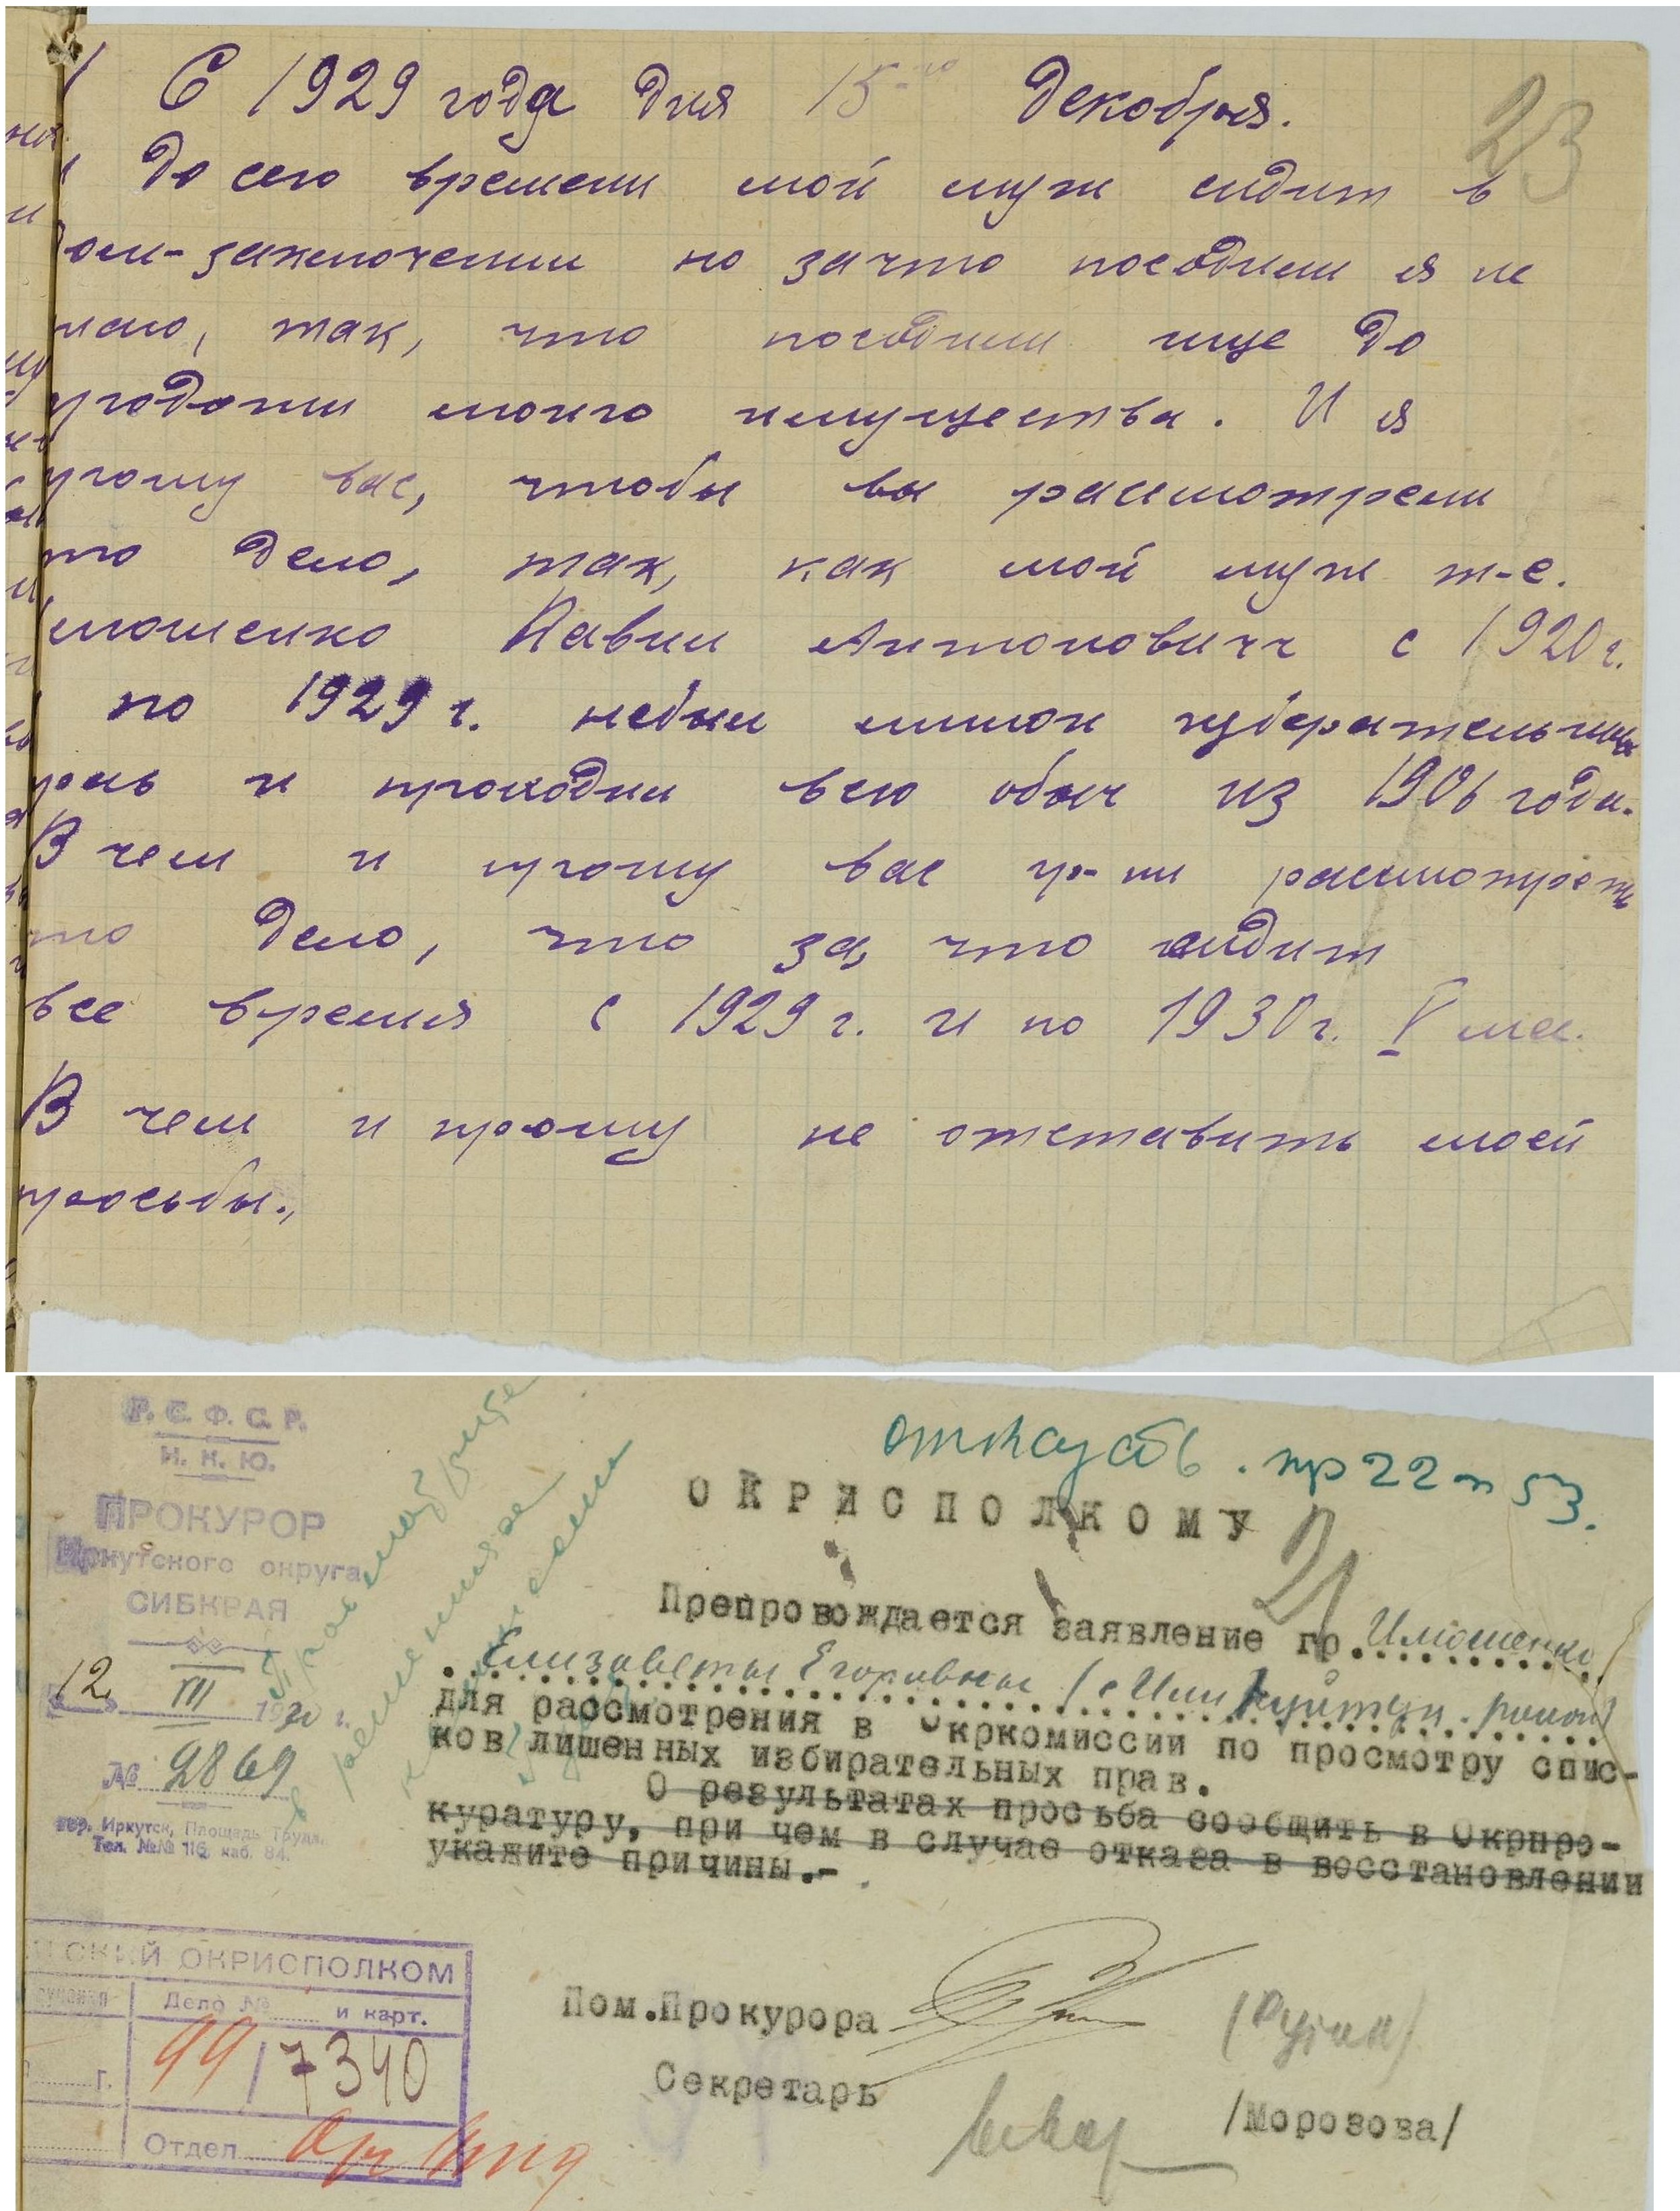 С 1929 года дня 15-го Декобрья.
23
До сего времени мой муж сидит в
дом-заключении но зачто посодили я не
знаю, так, что посодили ище до
продожи моиго имущества. И я
прошу вас, чтобы вы расмотрели
это дело, так, как мой муж т-е.
Илюшенко Павил Антоновичч с 1920 г.
и по 1929 г. небыл лишон избератель
и проходил всю из 1906 года.
В чем и прошу вас гр-ни расмотреть
это дело, что за, что сидит
все время с 1929 г. и по 1930 г. V мес.
В чем и прошу не отставить моей
просьбы.,
Р. С. Ф. С. Р.
Н. К. Ю.
ПРОКУРОР
Иркутского округа
СИБКРАЯ
12 III 1930 г.
№ 9869
гор. Иркутск, Площадь Труда.
Тел. №№ 116 каб. 84.
отсутств. пр 22 п 53.
ОКРИСПОЛКОМУ
21
Препровождается заявление гр. Илюшенко
Елизаветы Егоровны (с Или Куйтун. район)
для рассмотрения в Окркомиссии по просмотру спис-
ков лишенных избирательных прав.
О результатах просьба сообщить в Окрпро-
куратуру, при чем в случае отказа в восстановлении
укажите причины.-
СКИЙ ОКРИСПОЛКОМ
Дело № и карт.
99/7340
г.
Отдел Орг
Пом.Прокурора
Секретарь
/Морозова/